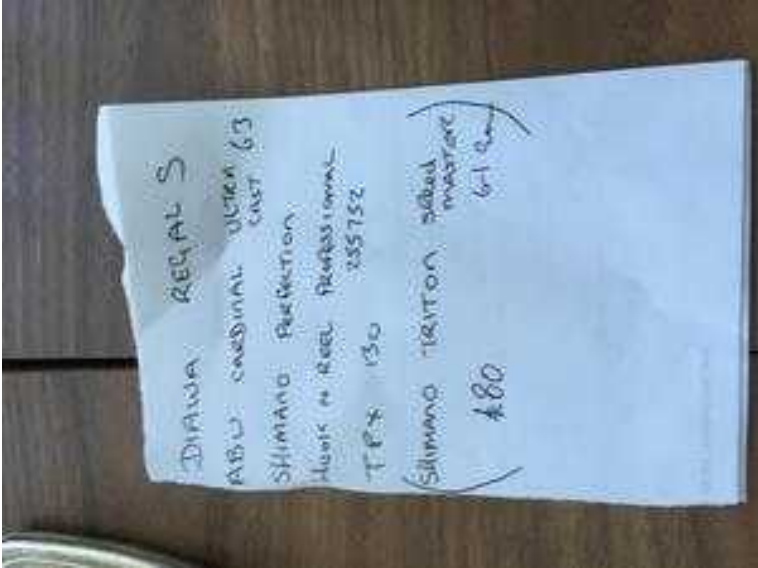 DIAWA REGAL S
ABU CARDINAL ULTRA
CAST 63
SHIMANO PERFECTION
HOOK N REEL PROFESSIONAL
255752
TPX 130
(SHIMANO TRITON SPEED
MASTER
£80)